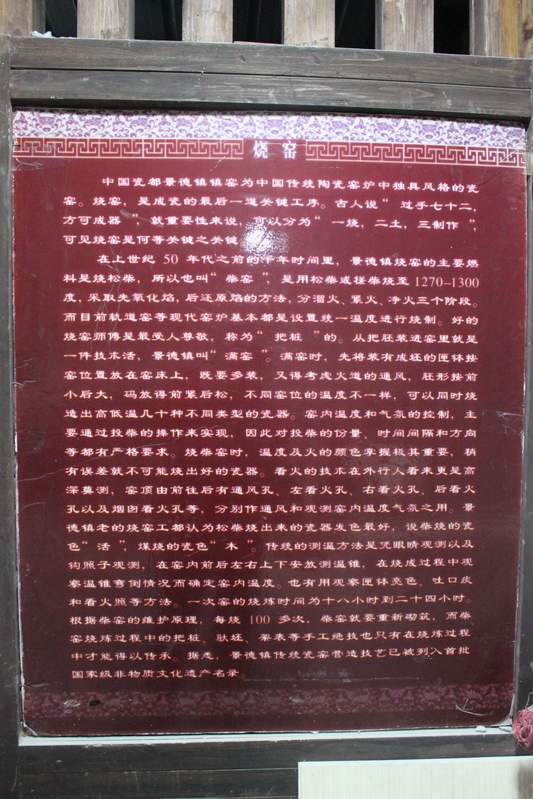 烧 窑
中国瓷都景德镇镇窑为中国传统陶瓷窑炉中独具风格的瓷
窑。烧窑，是成瓷的最后一道关键工序。古人说“ 过手七十二，
方可成器 ”，就重要性来说，可以分为“ 一烧，二土，三制作 ”
可见烧窑是何等关键之关键
在上世纪 50 年代之前的千年时间里，景德镇烧窑的主要燃
料是烧松柴，所以也叫“ 柴窑 ”，是用松柴或槎柴烧至 1270–1300
度，采取先氧化焰，后还原焰的方法，分溜火、紧火、净火三个阶段。
而目前轨道窑等现代窑炉基本都是设置统一温度进行烧制。好的
烧窑师傅是最受人尊敬，称为“ 把桩 ”的。从把胚装进窑里就是
一件技术活，景德镇叫“ 满窑 ”。满窑时，先将装有成坯的匣钵按
窑位置放在窑床上，既要多装，又得考虑火道的通风，胚形按前
小后大，码放得前紧后松，不同窑位的温度不一样，可以同时烧
造出高低温几十种不同类型的瓷器。窑内温度和气氛的控制，主
要通过投柴的操作来实现，因此对投柴的份量、时间间隔和方向
等都有严格要求。烧柴窑时，温度及火的颜色掌握极其重要，稍
有误差就不可能烧出好的瓷器。看火的技术在外行人看来更是高
深莫测，窑顶由前往后有通风孔、左看火孔、右看火孔、后看火
孔以及烟囱看火孔等，分别作通风和观测窑内温度气氛之用。景
德镇老的烧窑工都认为松柴烧出来的瓷器发色最好，说柴烧的瓷
色“ 活 ”，煤烧的瓷色“ 木 ”。传统的测温方法是凭眼睛观测以及
钩照子观测，在窑内前后左右上下安放测温锥，在烧成过程中观
察温锥弯倒情况而确定窑内温度，也有用观察匣钵亮色、吐口痰
和看火照等方法。一次窑的烧炼时间为十八小时到二十四小时。
根据柴窑的维护原理，每烧 100 多次，柴窑就要重新砌筑，而柴
窑烧炼过程中的把桩，驮坯、架表等手工绝技也只有在烧炼过程
中才能得以传承。据悉，景德镇传统瓷窑营造技艺已被列入首批
国家级非物质文化遗产名录